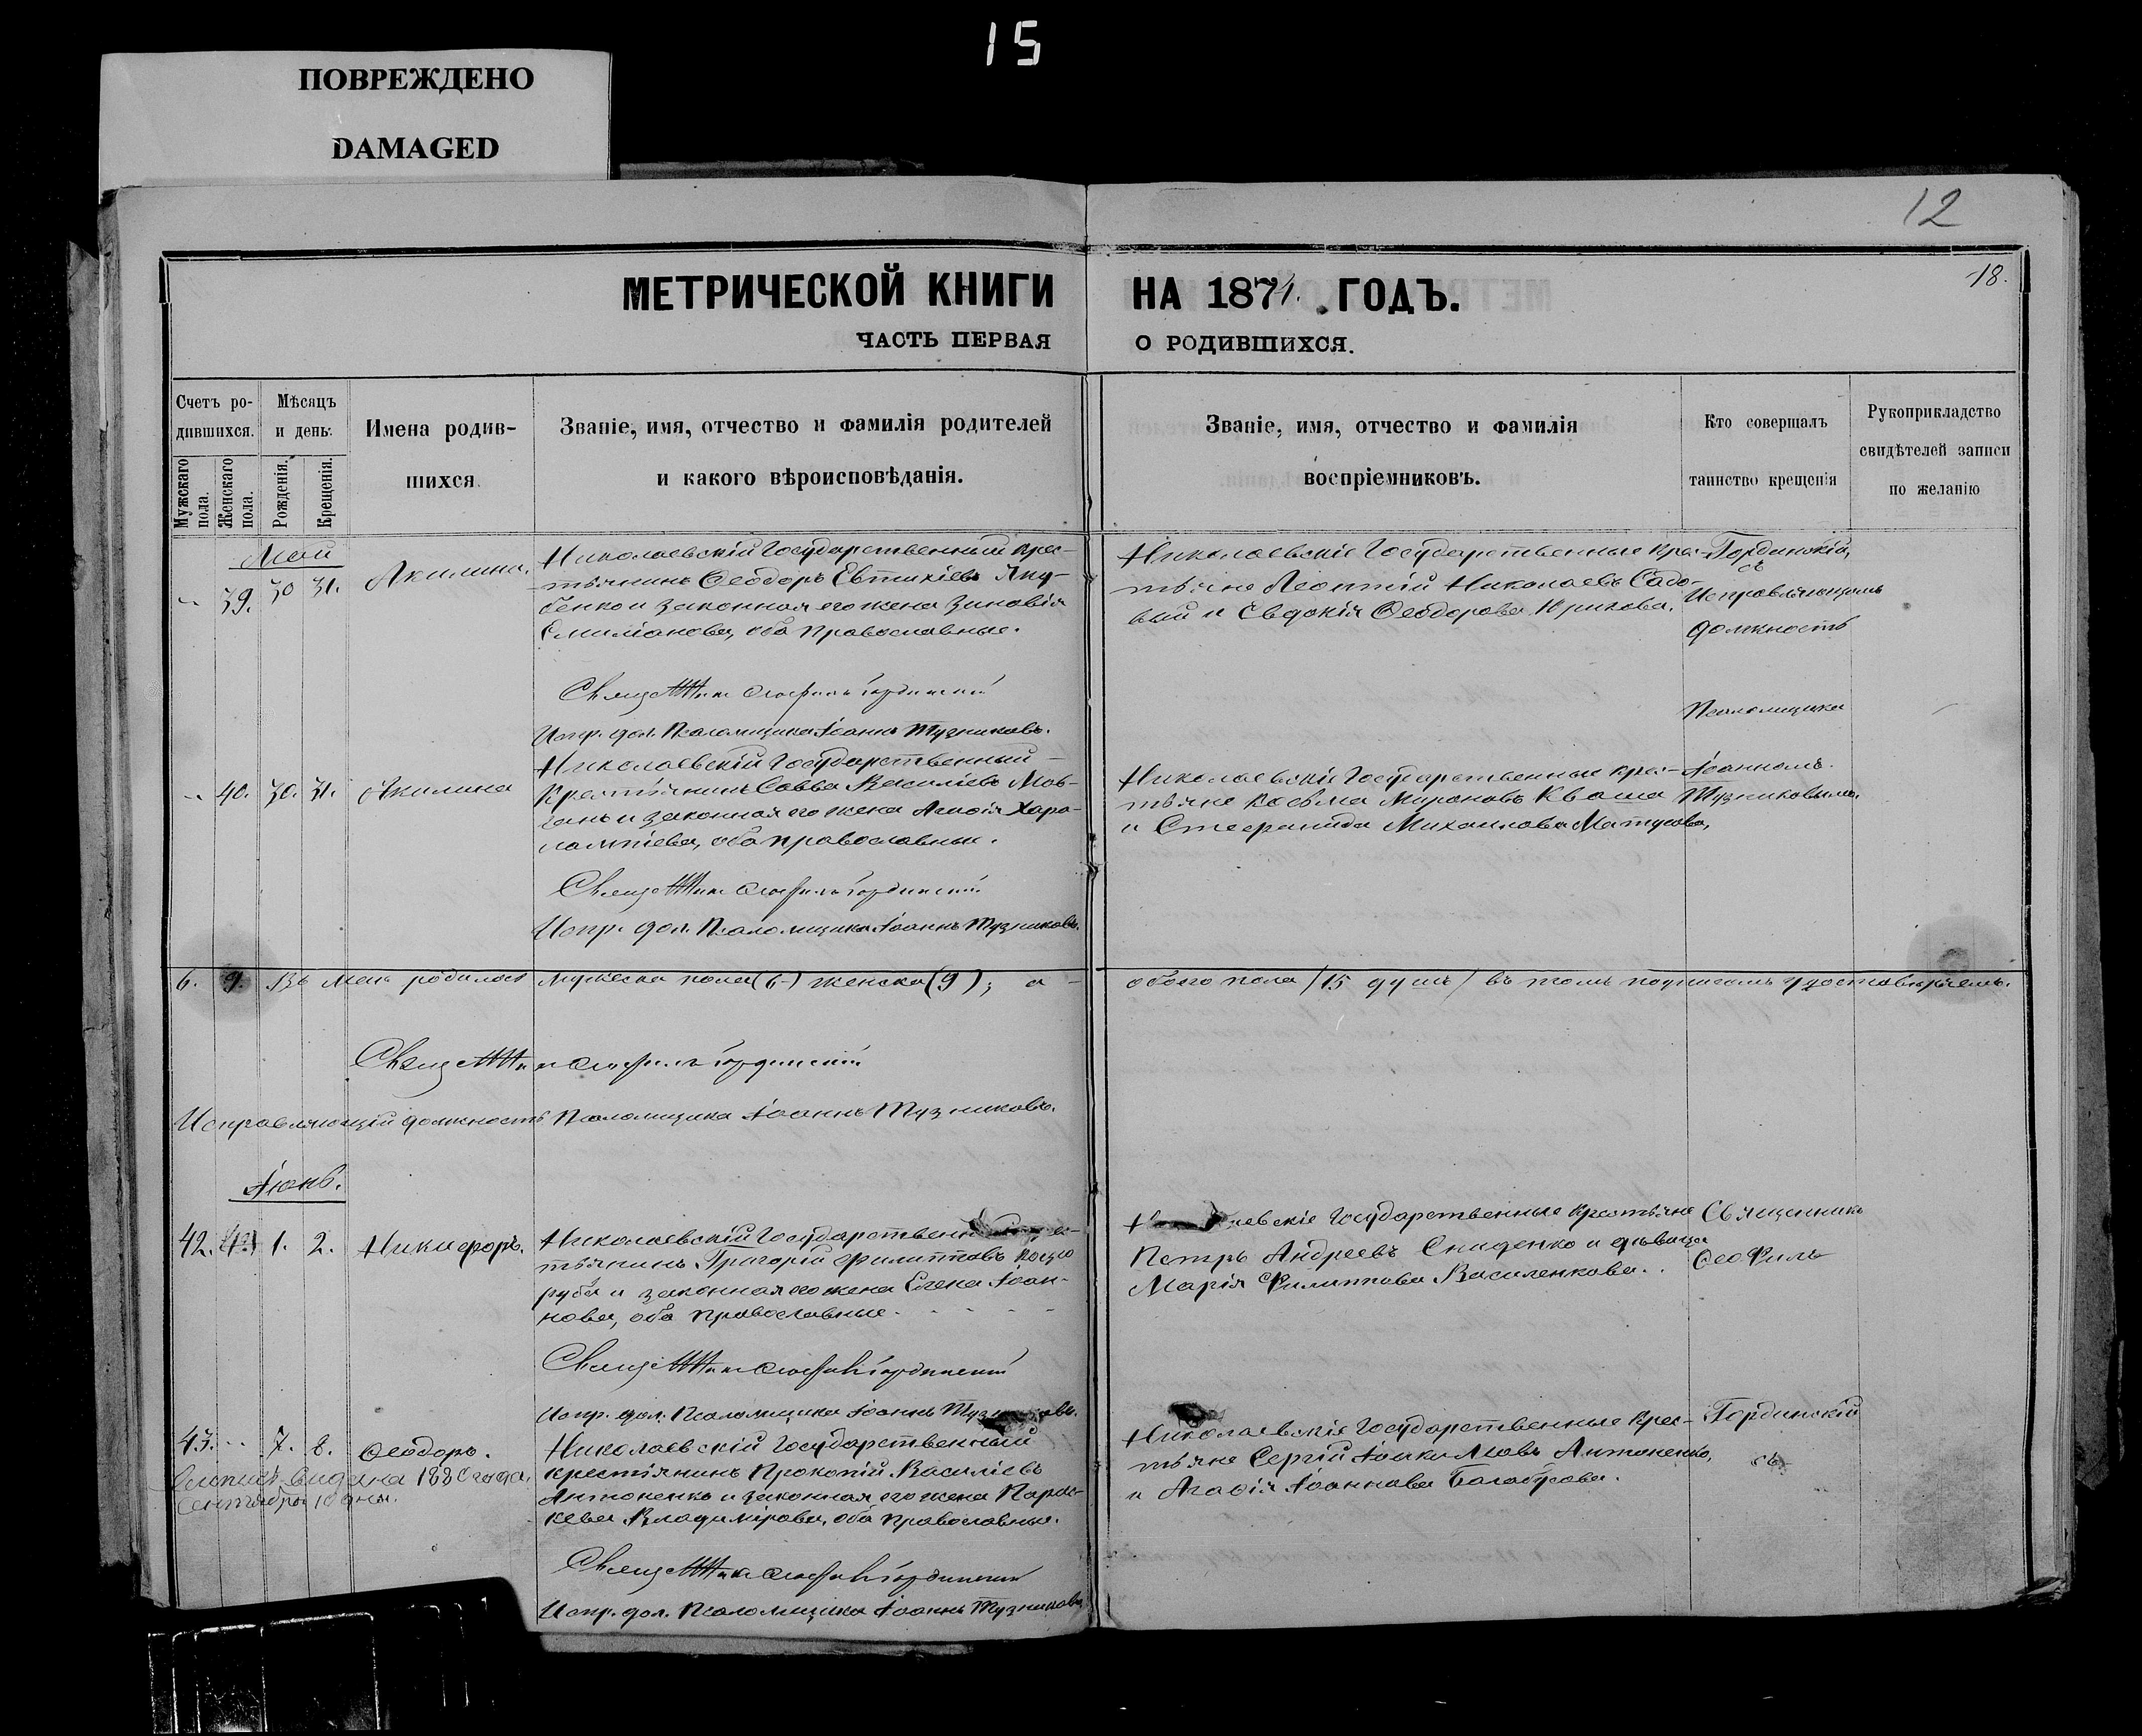 15
ПОВРЕЖДЕНО
DAMAGED
12
18.
МЕТРИЧЕСКОЙ КНИГИ НА 1871. ГОДЪ.
ЧАСТЬ ПЕРВАЯ О РОДИВШИХСЯ.
Счетъ ро-
дившихся.
Мужскаго пола.
Женскаго пола.
Мѣсяцъ
и день.
Рожденія.
Крещенія.
Имена родив-
шихся
Званіе, имя, отчество и фамилія родителей
и какого вѣроисповѣданія.
Званіе, имя, отчество и фамилія
воспріемниковъ.
Кто совершалъ
таинство крещенія
Рукоприкладство
свидѣтелей записи
по желанію
Май
39. 30 31. Акилина.
Николаевскій Государственный крес-
тьянинъ Ѳеодоръ Евтихіевъ Яку-
бенко и законная его жена Зиновія
Емиліанова, оба православные.
Николаевскіе Государственные крес-
тьяне Леонтій Николаевъ Садо-
вый и Евдокія Ѳеодорова
Гординскій,
съ
Исправляющимъ
должность
Псаломщика
Іоанномъ
Тузниковымъ.
Священникъ Ѳеофилъ Гординскій
Испр. дол. Псаломщика Іоаннъ Тузниковъ.
40. 30. 31. Акилина
Николаевскій Государственный
Крестьянинъ Савва Василіевъ Мов-
чанъ и законная его жена Агафія Хара-
лампіева, оба православные.
Николаевскіе Государственные крес-
тьяне Косьма Мироновъ Кваша
и Стефанида Михаилова Матусова,
Священникъ Ѳеофилъ Гординскій
Испр. дол. Псаломщика Іоаннъ Тузниковъ.
6. 9. Въ Маѣ родилось мужеска пола (6) женска (9); а обоего пола /15 душъ/ въ томъ подписомъ удостовѣряемъ.
Священникъ Ѳеофилъ Гординскій
Исправляющій должность Псаломщика Іоаннъ Тузниковъ.
Іюнь.
42. 1. 2. Никифоръ.
Николаевскій Государственный
тьянинъ Григорій Филипповъ Козо
руба и законная его жена Елена Іоан-
нова, оба православные.
Государственные крестьяне
Петръ Андреевъ Сниденко и дѣвица
Марія Филиппова Василенкова.
Священникъ
Ѳеофилъ
Гординскій
съ
Священникъ Ѳеофилъ Гординскій
Испр. дол. Псаломщика Іоаннъ
43. 7. 8. Ѳеодоръ.
выдана 1880 года,
Сентября 10 дня.
Николаевскій Государственный
крестьянинъ Прокопій Василіевъ
Антоненко и законная его жена Парас-
кева Владимірова, оба православные.
Николаевскіе Государственные крес-
тьяне Сергій Антоненко,
и Агафія Іоаннова
Священникъ Ѳеофилъ Гординскій
Испр. дол. Псаломщика Іоаннъ Тузниковъ